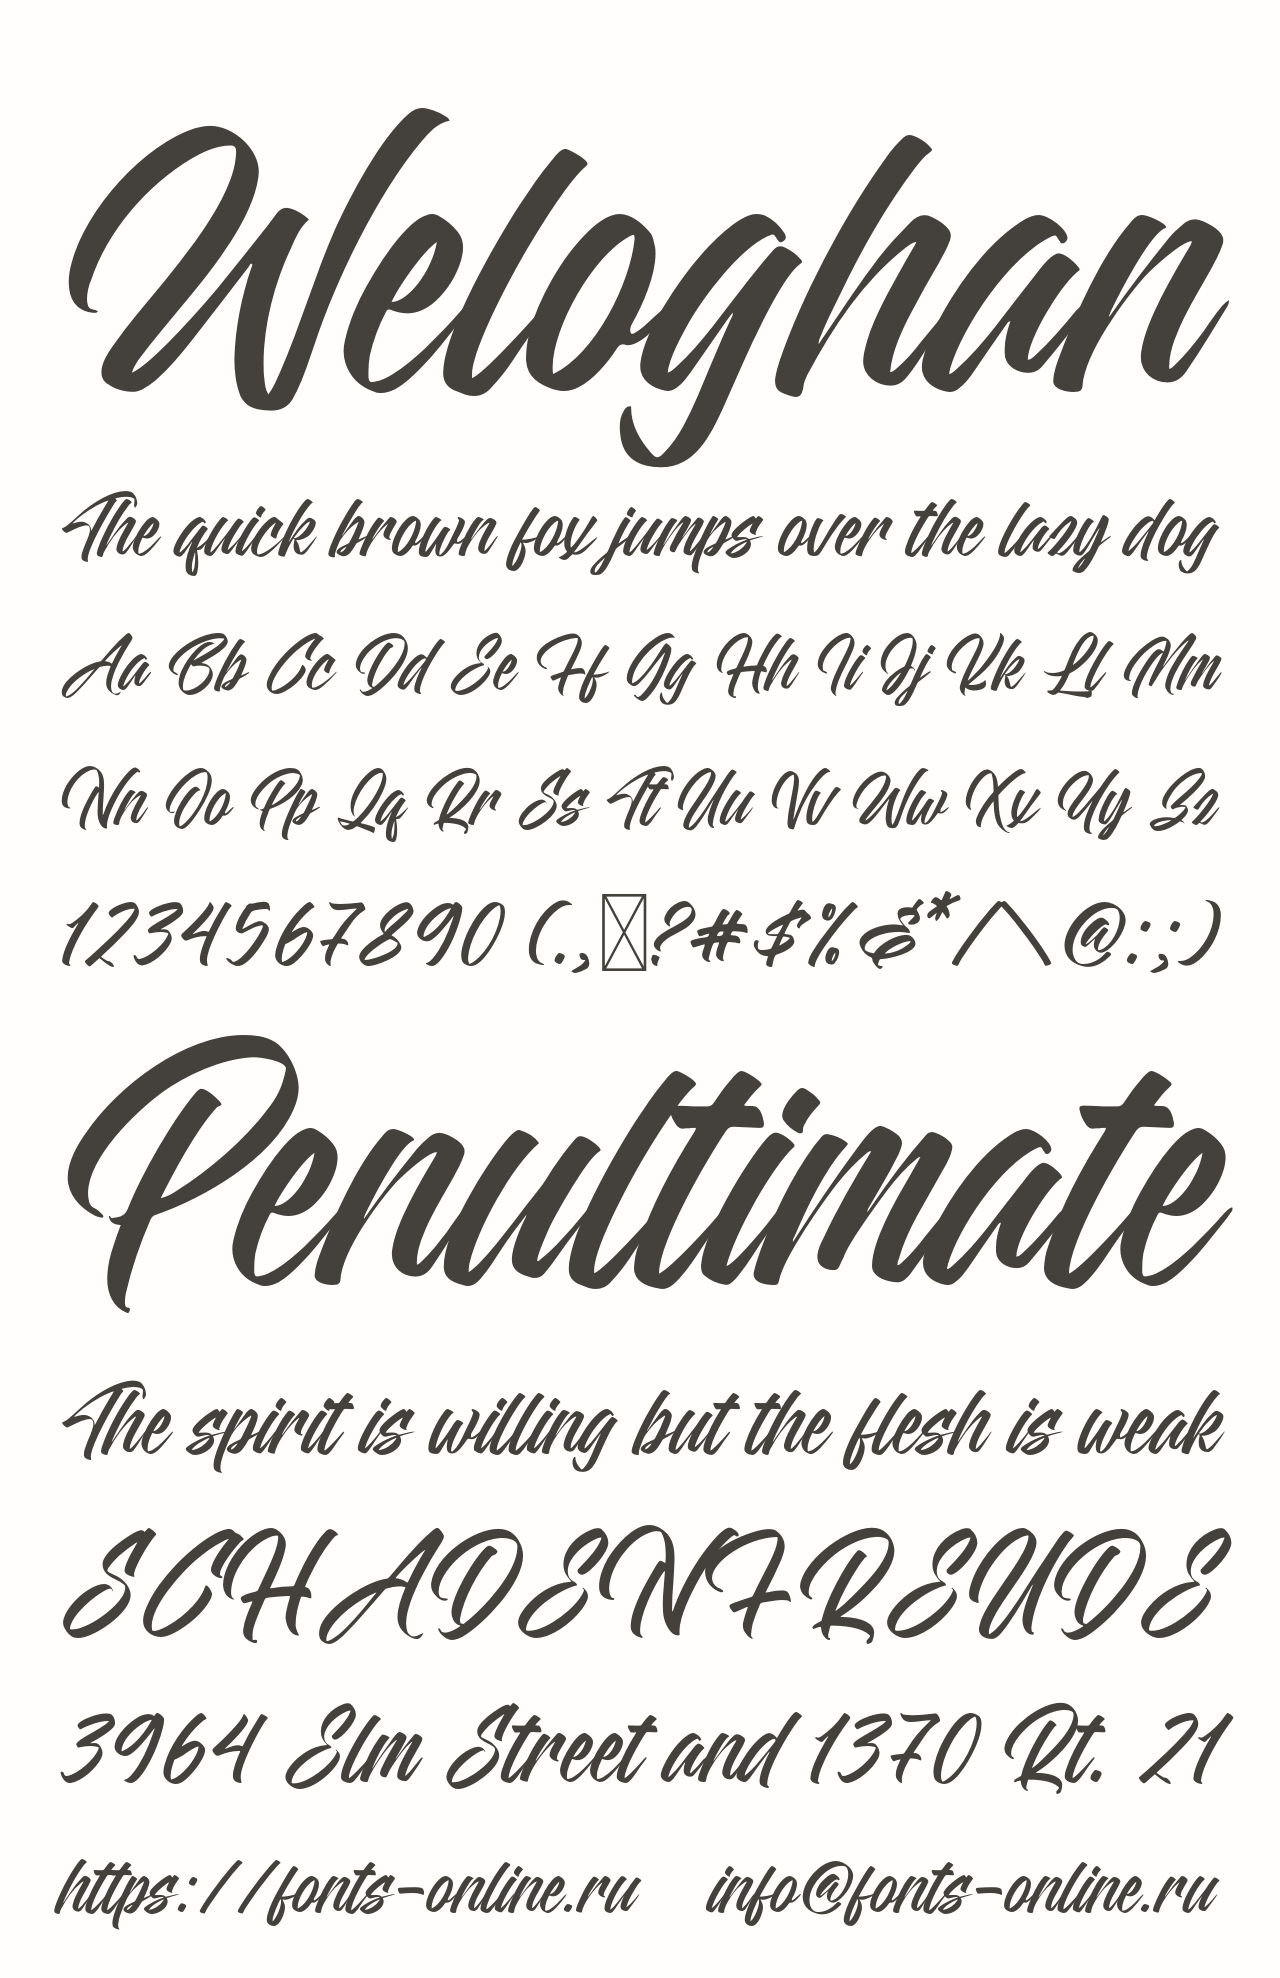 Weloghan
The quick brown fox jumps over the lazy dog
Aa Bb Cc Dd Ee Ff Gg Hh Ii Jj Kk Ll Mm
Nn Oo Pp Qq Rr Ss Tt Uu Vv Ww Xx Yy Zz
1234567890 (.,□?#$%&*/\@:;)
Penultimate
The spirit is willing but the flesh is weak
SCHADENFREUDE
3964 Elm Street and 1370 Rt. 21
https://fonts-online.ru info@fonts-online.ru